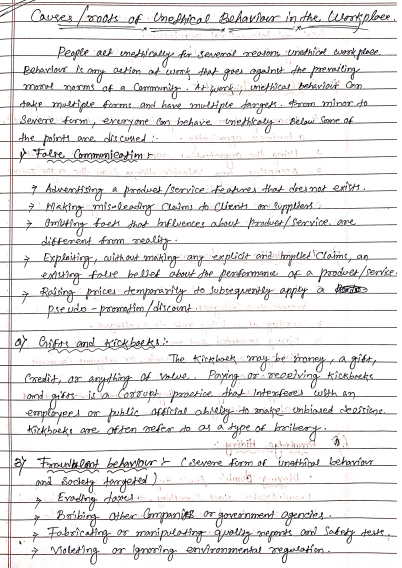 Causes/roots of Unethical Behaviour in the Workplace.
People act unethically for several reason, unethical workplace
Behaviour is any action at work that goes against the prevailing
moral norms of a Community. At work, unethical behaviour can
take multiple forms and have multiple targets. From minor to
Severe form, everyone can behave unethicaly. Below Some of
the points are discussed :-
1) False Communication :-
→ Advertising a product/service features that does not exists.
→ Making mis-leading Claims to Clients or suppliers.
→ Omitting facts that Influences about product/service are
different from reality.
→ Exploiting, without making any explicit and Implied Claims, an
existing false belief about the performance of a product/service.
→ Raising prices temporarily to subsequently apply a
pseudo-promotion/discount.
2) Gifts and Kickbacks :-
The Kickback may be money, a gift,
Credit, or anything of value. Paying or receiving Kickbacks
and gifts is a Corrupt practice that Interferes with an
employees or public official ability to make unbiased decisions.
Kickbacks are often refer to as a type of bribery.
3) Fraudulent behaviour :- (Severe form of unethical behaviour
and Society targeted)
→ Evading taxes.
→ Bribing other Companies or government agencies.
→ Fabricating or manipulating quality reports and Safety tests.
→ Violeting or Ignoring environmental regulation.